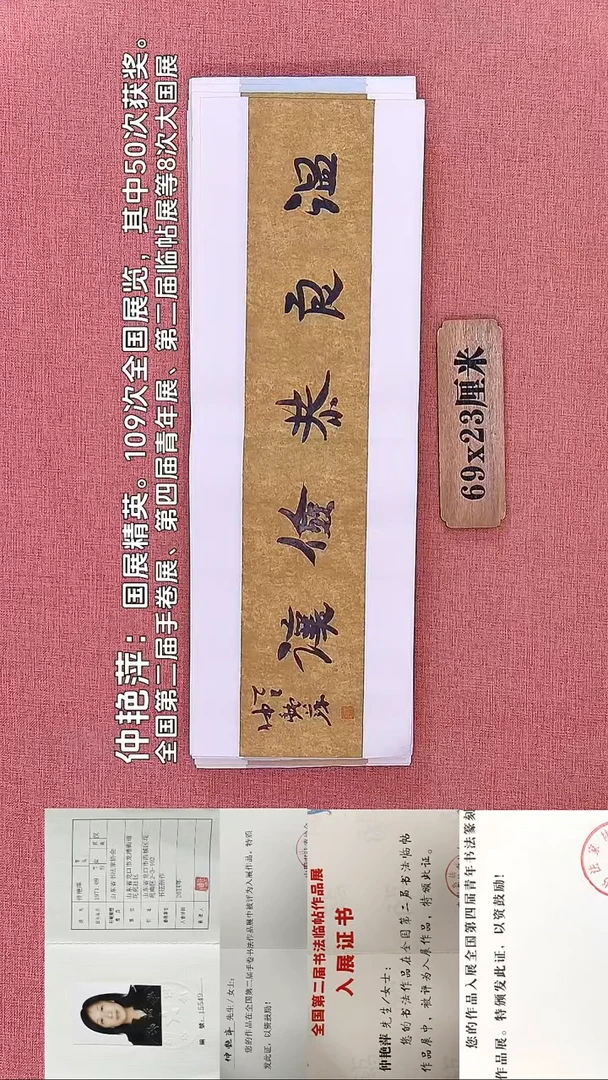 仲艳萍：国展精英。109次全国展览，其中50次获奖。
全国第二届手卷展、第四届青年展、第二届临帖展等8次大国展
温良恭俭让
69x23厘米
仲艳萍 先生/女士：
您的作品在全国第二届手卷书法作品展中被评为入展作品，特颁
发此证，以资鼓励！
全国第二届书法临帖作品展
入展证书
仲艳萍 先生/女士：
您的书法作品在全国第二届书法临帖
作品展中，被评为入展作品，特颁此证。
您的作品入展全国第四届青年书法篆刻
作品展。特颁发此证，以资鼓励！